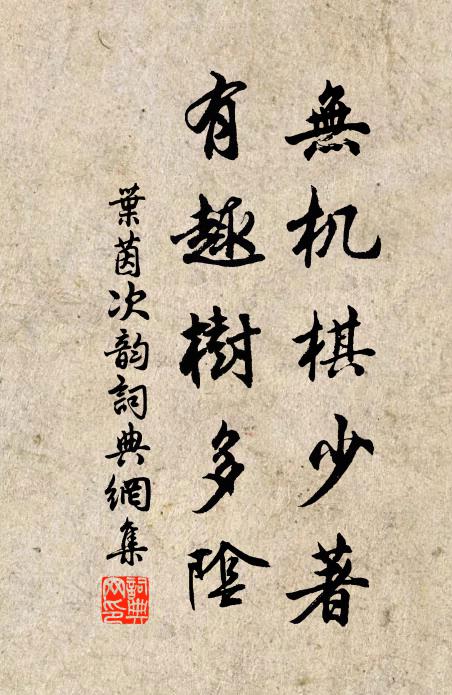 無机棋少著
有趣樹多陰
葉茵次韵詞典網集
詞典网印